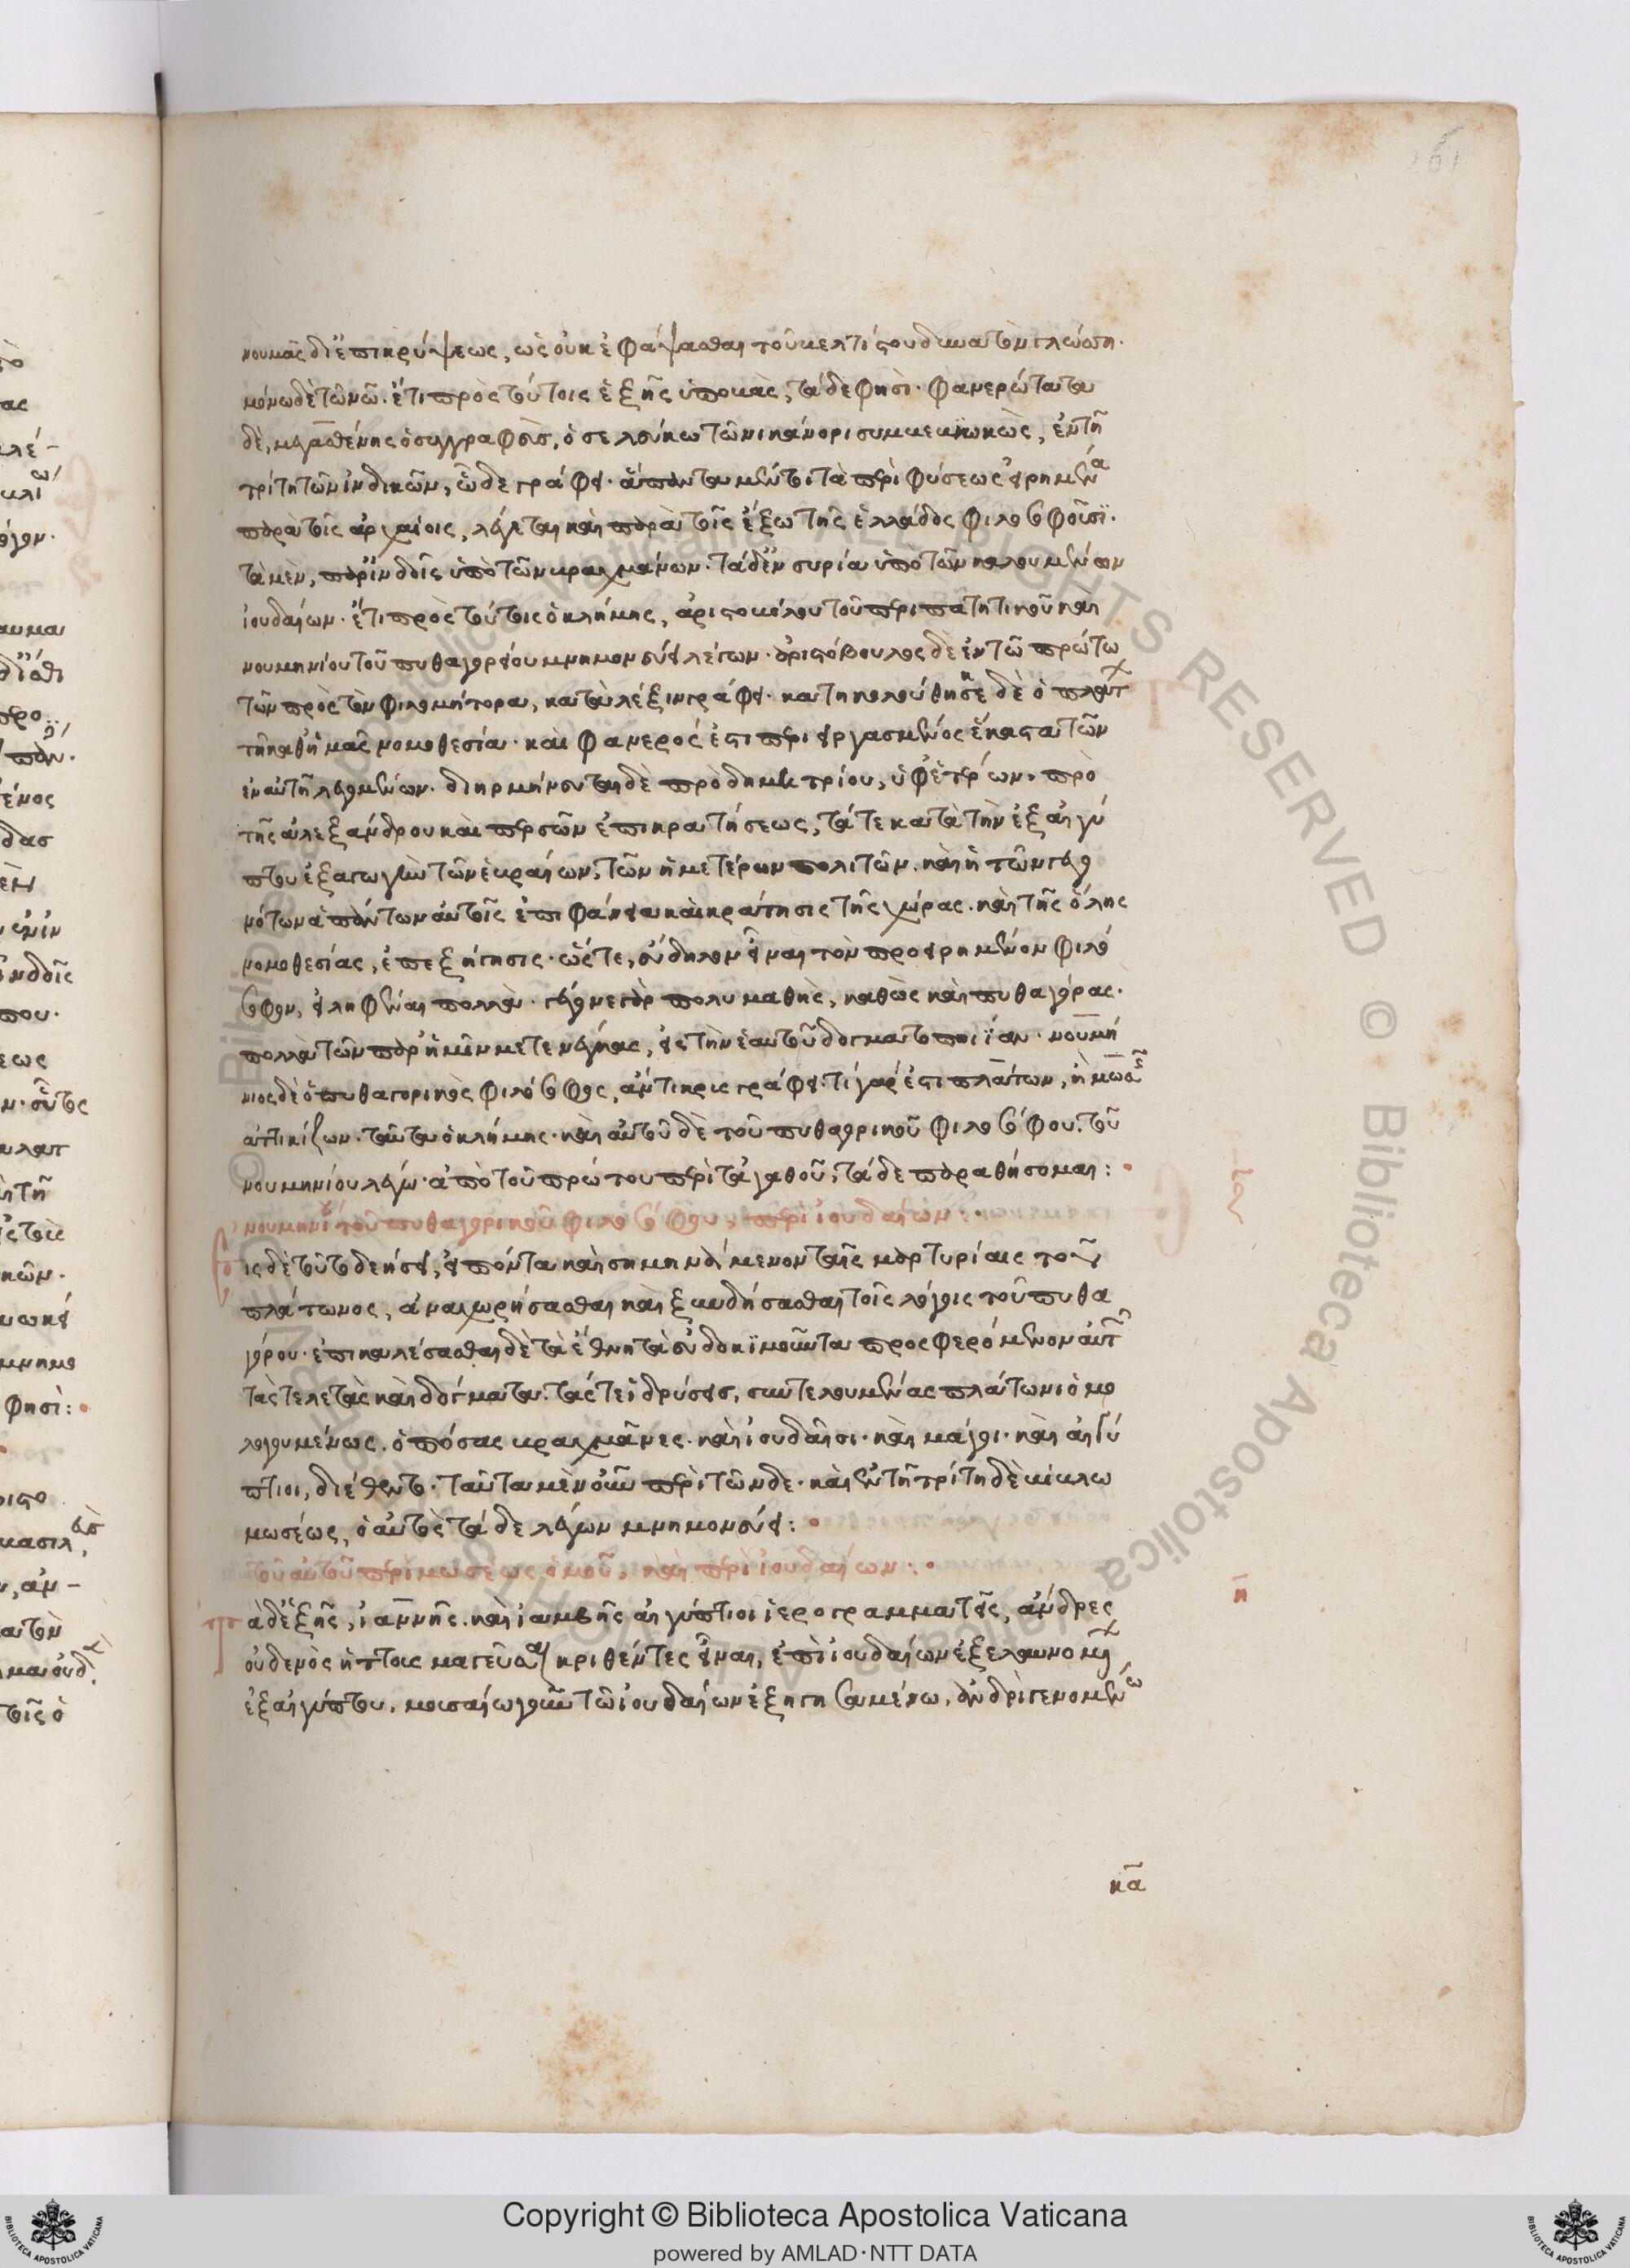 νουμᾶς δι' ἐπικρύψεως, ὡς οὐκ ἐφάψασθαι τοῦ βελτίστου δυνατὸν γλώττη.
μόνω δὲ τῶ νῶ. ἔτι πρὸς τούτοις ἑξῆς ὑποβὰς, τάδε φησὶ. φανερώτατα
δὲ, μεγασθένης ὁ συγγραφεὺς, ὁ σελεύκω τῶ νικάνορι συμβεβιωκὼς, ἐν τῆ
τρίτη τῶν ἰνδικῶν, ὧδε γράφει. ἅπαντα μέντοι τὰ περὶ φύσεως εἰρημένα
παρὰ τοῖς ἀρχαίοις, λέγεται καὶ παρὰ τοῖς ἔξω τῆς ἑλλάδος φιλοσοφοῦσϊ.
τὰ μὲν, παρ' ἰνδοῖς ὑπὸ τῶν βραχμάνων. τὰ δ' ἐν συρία ὑπὸ τῶν καλουμένων
ἰουδαίων. ἔτι πρὸς τούτοις ὁ κλήμης, ἀριστοβούλου τοῦ περιπατητικοῦ καὶ
νουμηνίου τοῦ πυθαγορείου μνημονεύει λέγων. ἀριστόβουλος δὲ ἐν τῶ πρώτω
τῶν πρὸς τὸν φιλομήτορα, κατὰ λέξιν γράφει. κατηκολούθηκε δὲ ὁ πλάτων
τῆ καθ' ἡμᾶς νομοθεσία. καὶ φανερός ἐστι περιειργασμένος ἕκαστα τῶν
ἐν αὐτῆ λεγομένων. διηρμήνευται δὲ πρὸ δημητρίου, ὑφ' ἑτέρων. πρὸ
τῆς ἀλεξάνδρου καὶ περσῶν ἐπικρατήσεως, τά τε κατὰ τὴν ἐξ αἰγύ
πτου ἐξαγωγὴν τῶν ἑβραίων, τῶν ἡμετέρων πολιτῶν. καὶ ἡ τῶν γεγο
νότων ἁπάντων αὐτοῖς ἐπιφάνεια καὶ κράτησις τῆς χώρας. καὶ τῆς ὅλης
νομοθεσίας, ἐπεξήγησις. ὥστε, εὔδηλον εἶναι τὸν προειρημένον φιλό
σοφον, εἰληφέναι πολλὰ. γέγονε γὰρ πολυμαθὴς, καθὼς καὶ πυθαγόρας.
πολλὰ τῶν παρ' ἡμῖν μετενέγκας, εἰς τὴν ἑαυτοῦ δογματοποιΐαν. νουμή
νιος δὲ ὁ πυθαγορικὸς φιλόσοφος, ἄντικρις γράφει. τί γάρ ἐστι πλάτων, ἢ μωσῆς
ἀττικίζων. ταῦτα ὁ κλήμης. καὶ αὐτοῦ δὲ τοῦ πυθαγορικοῦ φιλοσόφου. τοῦ
νουμηνίου λέγω. ἀπὸ τοῦ πρώτου περὶ τἀγαθοῦ, τάδε παραθήσομαι:
ζ
νουμηνίου τοῦ πυθαγορικοῦ φιλοσόφου, περὶ ἰουδαίων:
εἰς δὲ τοῦτο δεήσει, εἰπόντα καὶ σημηνάμενον ταῖς μαρτυρίαις τοῦ
πλάτωνος, ἀναχωρήσασθαι καὶ ξυνδήσασθαι τοῖς λόγοις τοῦ πυθα
γόρου. ἐπικαλέσασθαι δὲ τὰ ἔθνη τὰ εὐδοκϊμοῦντα προσφερόμενον αὐτῶν
τὰς τελετὰς καὶ δόγματα. τάς τε ἱδρύσεις, συντελουμένας πλάτωνι ὁμο
λογουμένως. ὁπόσας βραχμᾶνες. καὶ ἰουδαῖοι. καὶ μάγοι. καὶ αἰγύ
πτιοι, διέθεντο. ταῦτα μὲν οὖν περὶ τῶνδε. καὶ ἐν τῆ τρίτη δὲ βίβλω
μωσέως, ὁ αὐτὸς τάδε λέγων μνημονεύει:
η
τοῦ αὐτοῦ περὶ μωσέως ὁμοῦ, καὶ περὶ ἰουδαίων:
τὰ δ' ἑξῆς, ἰαννῆς. καὶ ἰαμβῆς αἰγύπτιοι ἱερογραμματεῖς, ἄνδρες
οὐδενὸς ἥττους μαγεῦσαι κριθέντες εἶναι, ἐπὶ ἰουδαίων ἐξελαυνομένων
ἐξ αἰγύπτου. μουσαίω γοῦν τῶ ἰουδαίων ἐξηγησαμένω. ἀνδρὶ γενομένω
κα
Copyright © Biblioteca Apostolica Vaticana
powered by AMLAD·NTT DATA